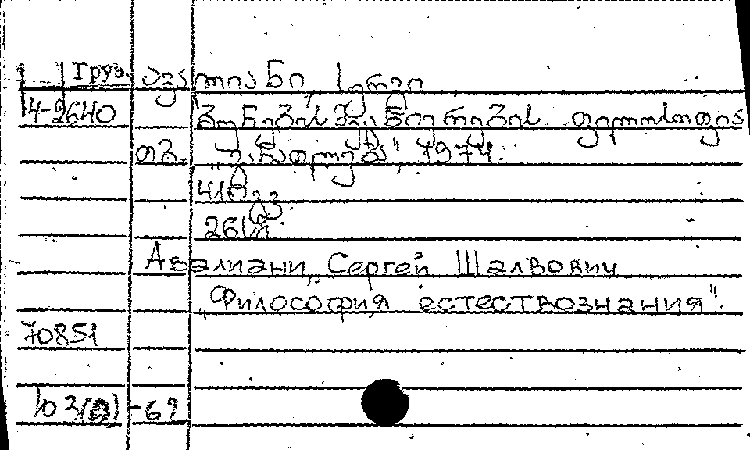 Груз. ავალიანი, სერგი
14-2640 ბუნებისმეცნიერების ფილოსოფია
თბ. "განათლება", 1974.
416გვ.
Авалиани, Сергей Шалвович
„Философия естествознания".
70851
Ю3(2)-69